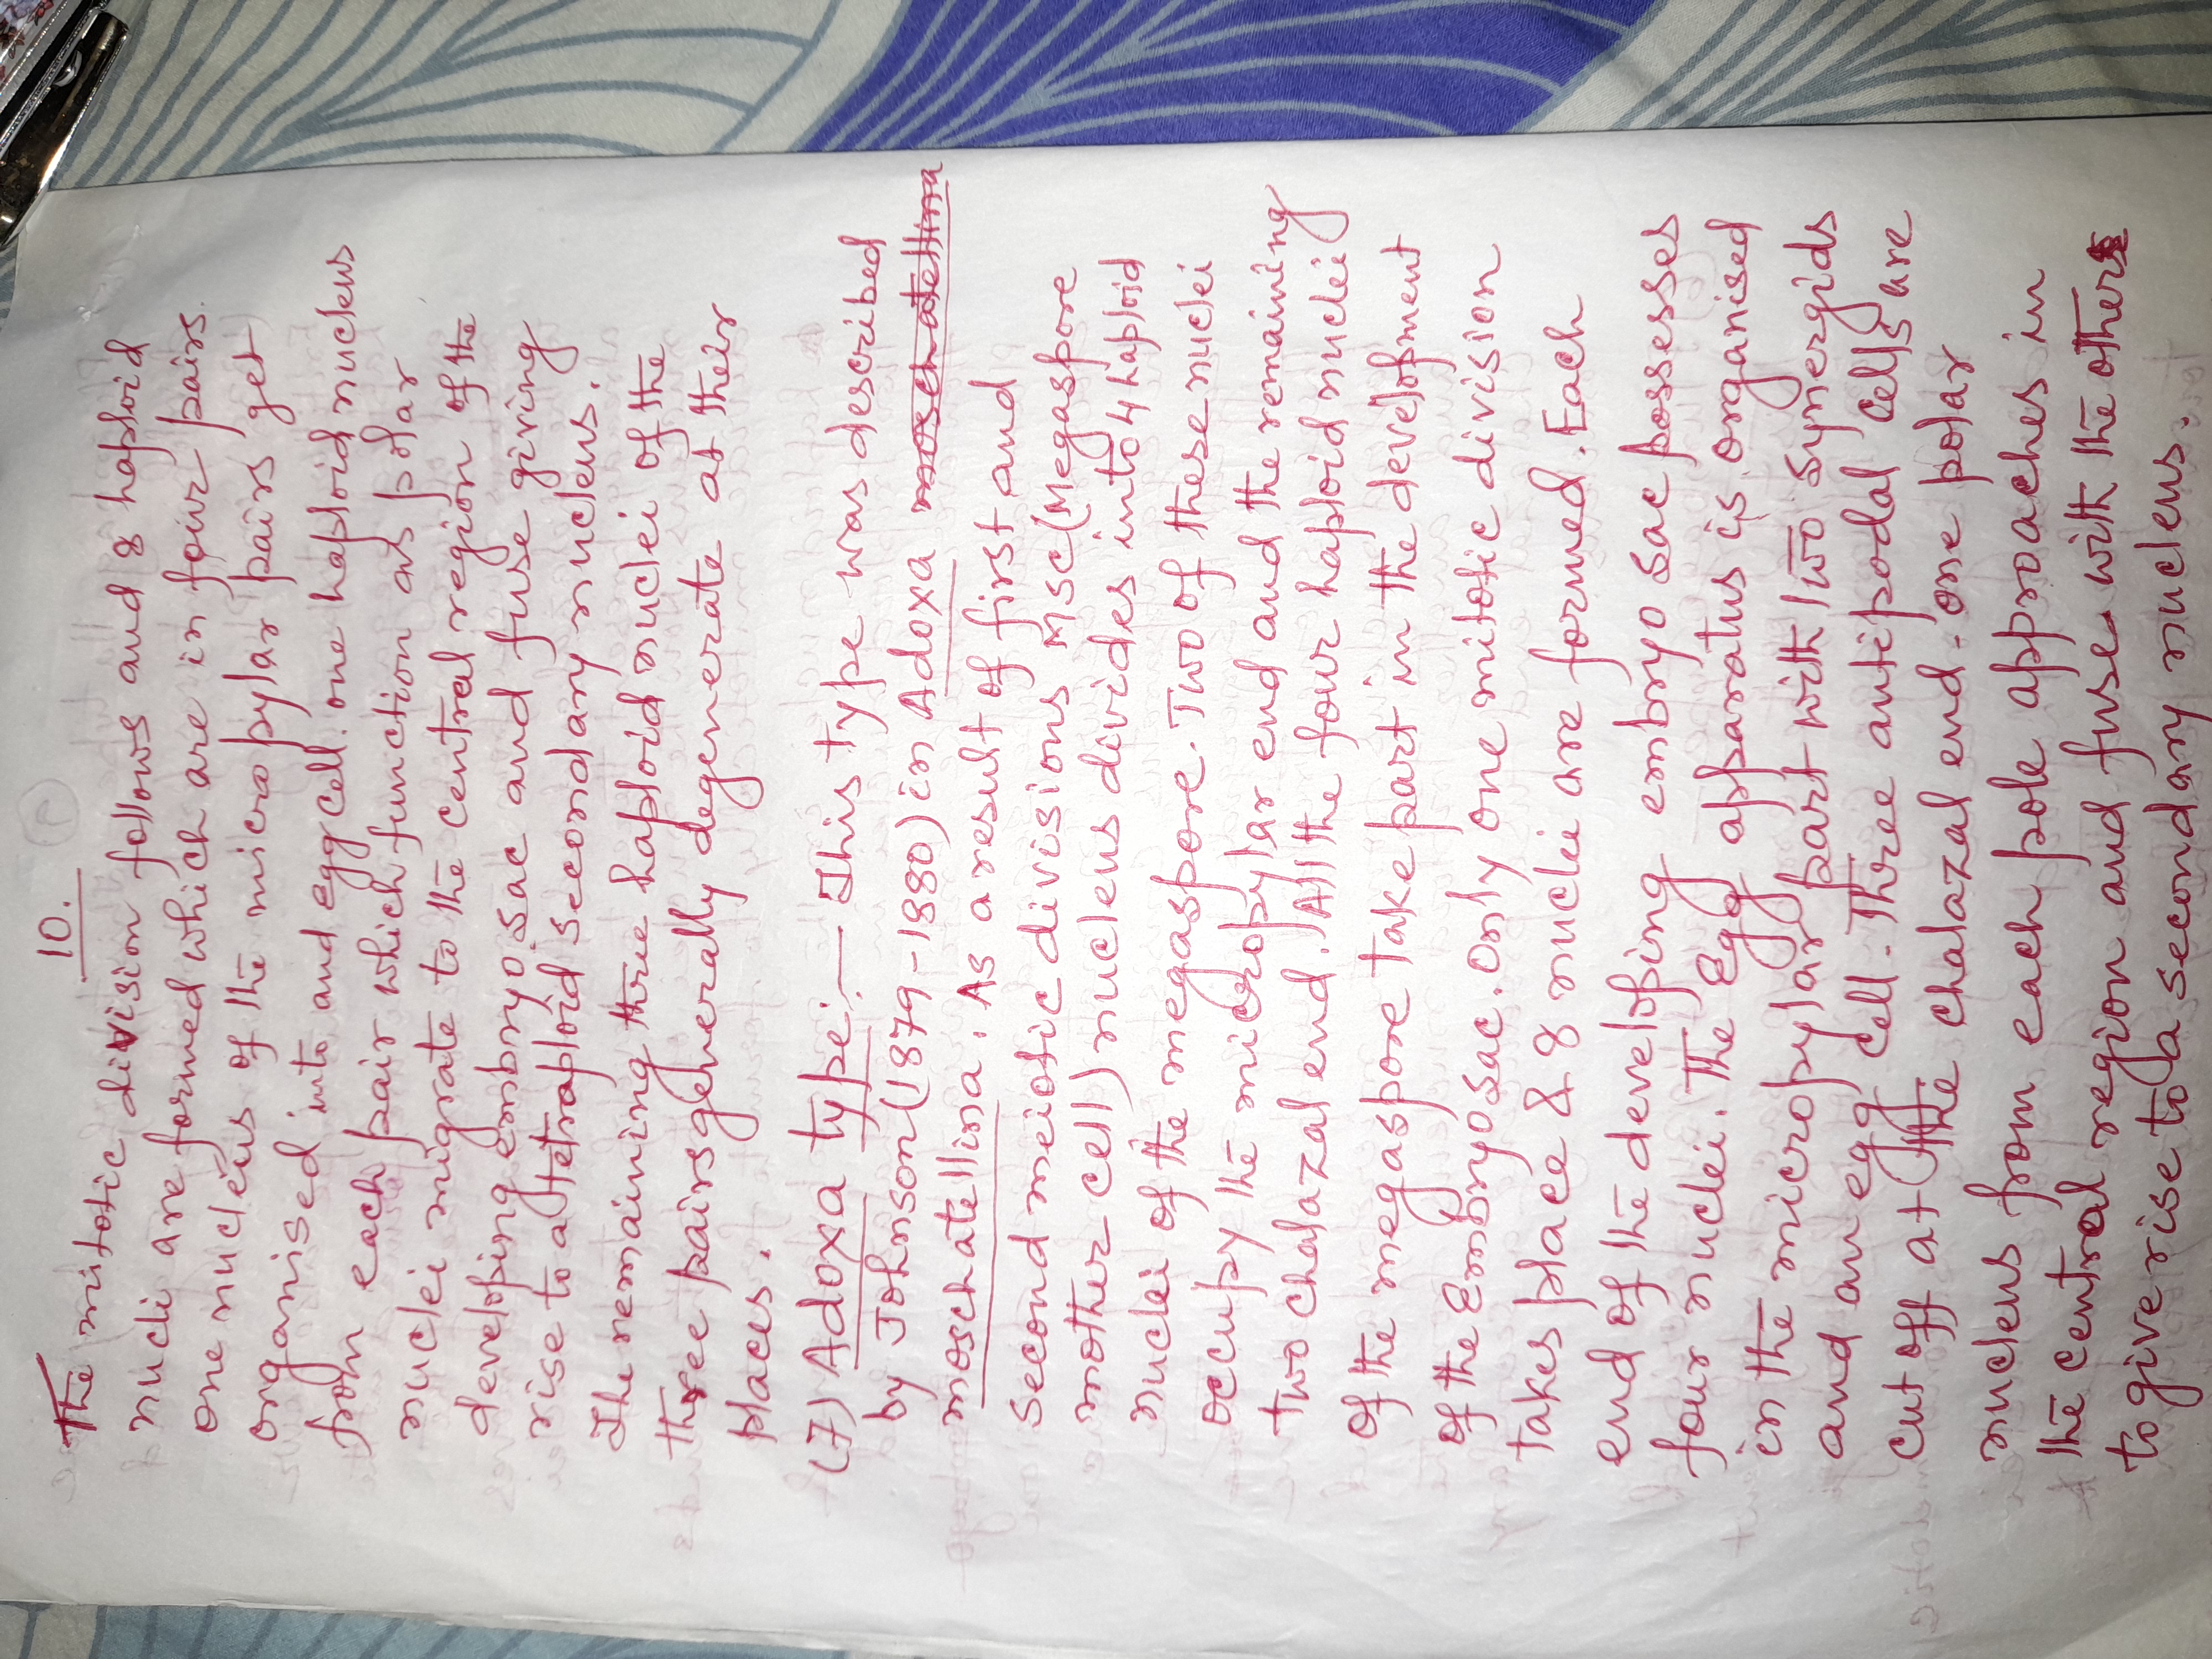 10.
The mitotic division follows and 8 haploid
nucli are formed which are in four pairs.
one nucleus of the micropylar pairs get
organised into and egg cell. one haploid nucleus
from each pair which function as polar
nuclei migrate to the central region of the
developing embryo sac and fuse giving
rise to a tetraploid secondary nucleus.
The remaining three haploid nuclei of the
three pairs generally degenerate at their
places.
(7) Adoxa type:— This type was described
by Johnson (1879-1880) in Adoxa moschatellina
moschatellina. As a result of first and
second meiotic divisions MSC (Megaspore
mother cell) nucleus devides into 4 haploid
nuclei of the megaspore. Two of these nuclei
occupy the micropylar end and the remaining
two chalazal end. All the four haploid nuclei
of the megaspore take part in the development
of the Embryo sac. Only one mitotic division
takes place & 8 nuclei are formed. Each
end of the developing embryo sac possesses
four nuclei. The Egg apparatus is organised
in the micropylar part with two synergids
and an egg cell. Three antipodal cells are
cut off at the chalazal end. one polar
nucleus from each pole approaches in
the central region and fuse with the other
to give rise to a secondary nucleus.